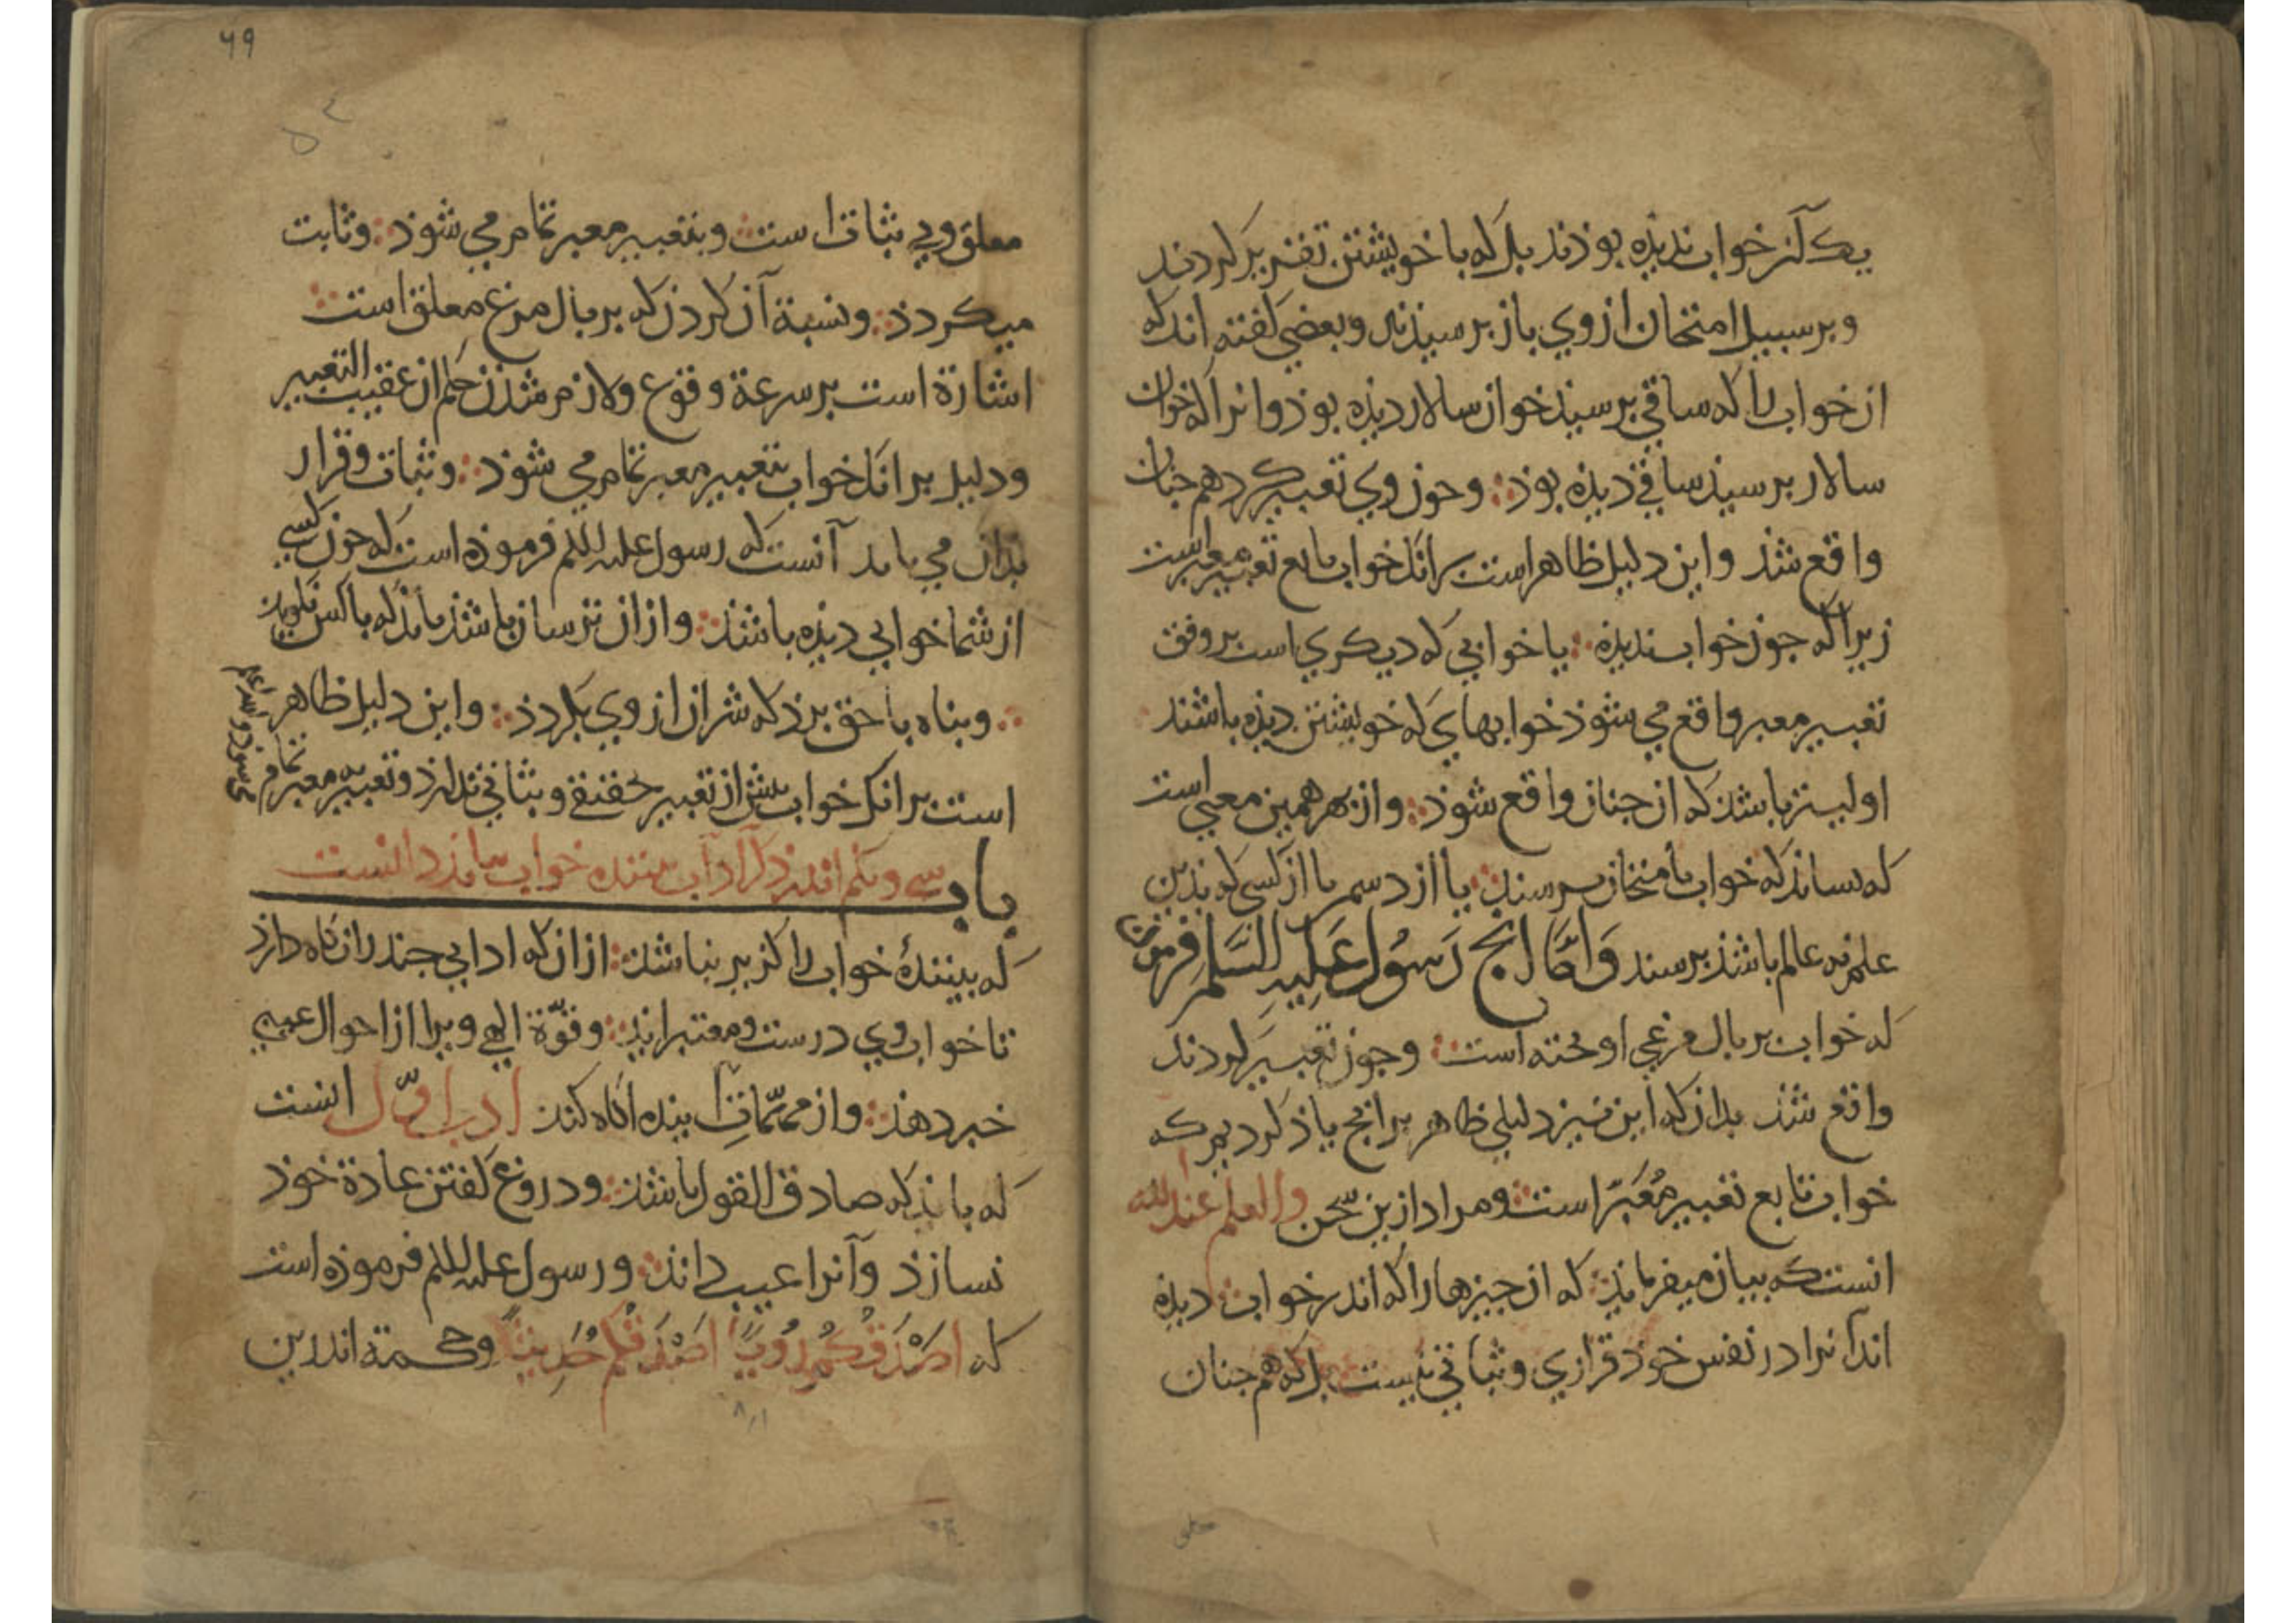 یک آنز خواب ندیذه بوذند بل که با خویشتن تقدیر کردند
و بر سبیل امتحان از وی باز برسیذند و بعضی کفته اند که
از خواب را که ساقی برسیذ خواز سالار دیذه بوذ و انرا که خوان
سالار برسیذ ساقی دیذه بوذ وجوز وی تعبیر کرد هم جنان
واقع شذ و این دلیل ظاهر است بر انک خواب تابع تعبیر معبر است
زیرا که جوز خواب ندیذه یا خوابی که دیکری است بر وفق
تعبیر معبر واقع می شوذ خوابهای که خویشتن دیذه باشند
اولیتر باشذ که از جناز واقع شوذ و از بهر همین معنی است
که خواب بامتحاز برسند یا از دسمر یا از کسی که بذین
علم نه عالم باشذ برسند وَامّا انج رَسُول عَلیهِ السَّلم فرموذ
که خواب بر بال مرغی اوخته است وجوز تعبیر کردند
واقع شذ بداز که این نیز دلیلی ظاهر بر انج یاذ کردیم که
خواب تابع تعبیر مُعَبّر است و مراد ازین سخن والعلم عند الله
انست که بیاز میفرمایذ که از جیزها را که اندر خواب دیذه
اند آنرا در نفس خوذ قراری و ثباتی نیست بل که هم جنان
۴۹
معلق و بی ثبات است و بتعبیر معبر تمام می شوذ و ثابت
میکردذ و نسبة آن کردز که بر بال مرغ معلق است
اشارة است بر سرعة وقوع و لازم شذز حکم از عقیب التعبیر
و دلیل بر انک خواب بتعبیر معبر تمام می شوذ و ثبات و قرار
بذان می یابد آنست که رسول علیه السلم فرموذه است که جوز کسی
از شما خوابی دیذه باشذ و از از ترساز باشذ بایذ که با کس نکویذ
و بناه با حق برذ که شر از از وی بکردذ و این دلیل ظاهر
است بر انک خواب بیش از تعبیر حقیقی و ثباتی ندارذ و تعبیر معبر تمام
می شوذ و الله اعلم
باب سی و یکم اندر ذکر آداب بیننده خواب بباید دانست
که بینندهٔ خواب را کزیر نباشذ از ان که ادابی جند را نکاه دارذ
تا خواب وی درست و معتبر ایذ و قوّة الهی ویرا از احوال غیبی
خبر دهذ و از مهمّات آینده اکاه کند ادب اوّل انست
که بایذ که صادق القول باشذ و دروغ کفتن عادة خوذ
نسازذ و آنرا عیب داند و رسول علیه السلم فرموذه است
که اَصْدَقُکُم رُویًا اَصْدَقُکُم حَدِیثًا و حکمة اندرین